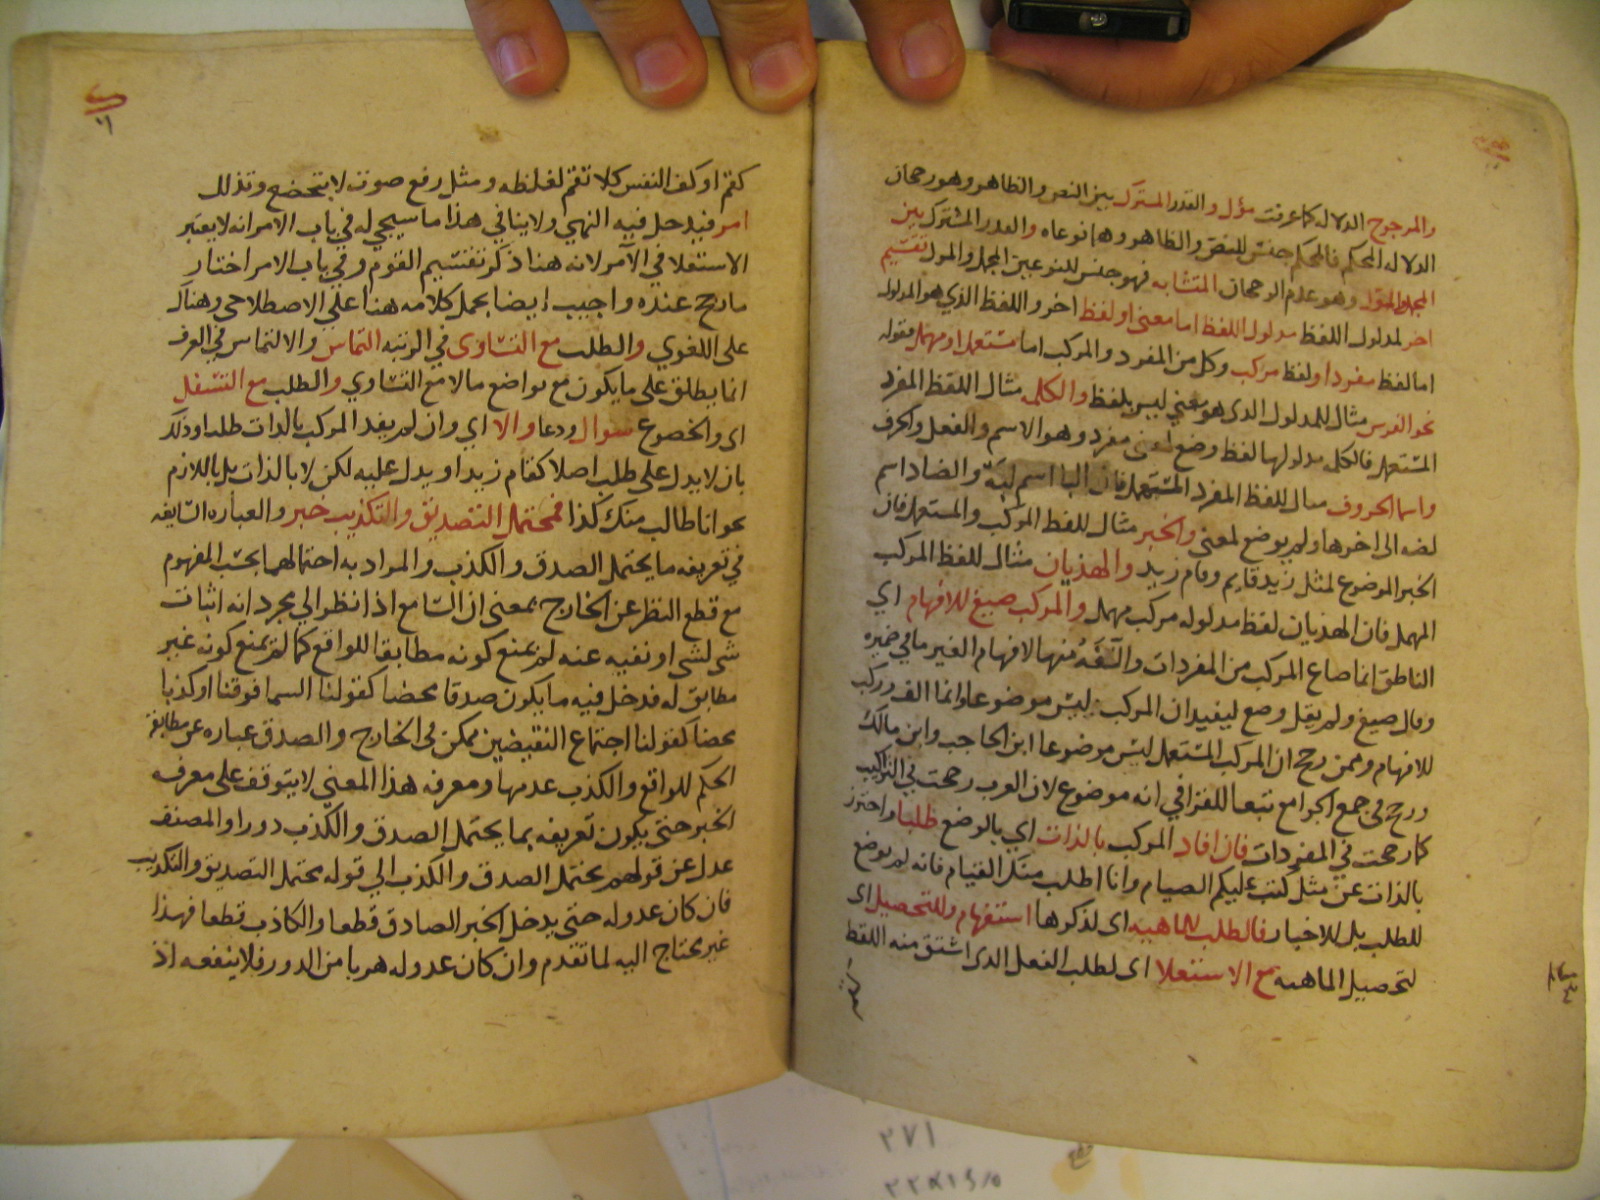 والمرجوح الدلاله كما عرفت مؤل والقدر المشترك بين النص والظاهر وهو رجحان
الدلاله المحكم فالمحكم جنس للنص والظاهر وهما نوعاه والقدر المشترك بين
المجمل والمؤل وهو عدم الرجحان المتشابه فهو جنس للنوعين المجمل والمول تقسيم
اخر لمدلول اللفظ مدلول اللفظ اما معنى او لفظ اخر واللفظ الذي هو المدلول
اما لفظ مفرد او لفظ مركب وكل من المفرد والمركب اما مستعمل او مهمل فقوله
نحو الفرس مثال للمدلول الذي هو معني ليس بلفظ والكلمه مثال اللفظ المفرد
المستعمل فالكلمه مدلولها لفظ وضع لمعنى مفرد وهو الاسم والفعل والحرف
واسما الحروف مثال للفظ المفرد المهمل فان البا اسم لبه والضاد اسم
لضه الى اخرها ولم يوضع لمعنى والخبر مثال للفظ المركب والمستعمل فان
الخبر الموضوع لمثل زيد قايم وقام زيد والهذيان مثال للفظ المركب
المهمل فان الهذيان لفظ مدلوله مركب مهمل والمركب صيغ للافهام اي
الناطق انما صاغ المركب من المفردات والفه منها لافهام الغير ما في ضميره
وقال صيغ ولم يقل وضع ليفيد ان المركب ليس موضوعا وانما الف وركب
للافهام وممن رجح ان المركب المستعمل ليس موضوعا ابن الحاجب وابن مالك
ورجح في جمع الجوامع تبعا للقرافي انه موضوع لان العرب رجحت في التراكيب
كما رجحت في المفردات فان افاد المركب بالذات اي بالوضع طلبا واحترز
بالذات عن مثل كتب عليكم الصيام وانا اطلب منك القيام فانه لم يوضع
للطلب بل للاخبار فالطلب للماهيه اي لذكرها استفهام وللتحصيل اي
لتحصيل الماهيه مع الاستعلا اي لطلب الفعل الذي اشتق منه اللفظ
كقم او كف النفس كلا تقم لغلظه ومثل رفع صوت لا بتخضع وتذلل
امر فيدخل فيه النهي ولا ينافي هذا ما سيجي له في باب الامر انه لا يعتبر
الاستعلا في الآمر لانه هنا ذكر تقسيم القوم وفي باب الامر اختار
ما رجح عنده واجيب ايضا بحمل كلامه هنا علي الاصطلاحي وهناك
على اللغوي والطلب مع التساوي في الرتبه التماس والالتماس في العرف
انما يطلق على ما يكون مع تواضع ما لا مع التساوي والطلب مع التسفل
اي والخضوع سوال ودعا والا اي وان لم يفد المركب بالذات طلبا وذلك
بان لا يدل على طلب اصلا كقام زيد او يدل عليه لكن لا بالذات بل باللازم
نحو انا طالب منك كذا فمحتمل التصديق والتكذيب خبر والعباره الشايعه
في تعريفه ما يحتمل الصدق والكذب والمراد به احتمالهما بحسب المفهوم
مع قطع النظر عن الخارج بمعنى ان السامع اذا نظر الي مجرد انه اثبات
شي لشي او نفيه عنه لم يمنع كونه مطابقا للواقع كما لم يمنع كونه غير
مطابق له فدخل فيه ما يكون صدقا محضا كقولنا السما فوقنا او كذبا
محضا كقولنا اجتماع النقيضين ممكن في الخارج والصدق عباره عن مطابقة
الحكم للواقع والكذب عدمها ومعرفه هذا المعنى لا يتوقف على معرفه
الخبر حتى يكون تعريفه بما يحتمل الصدق والكذب دورا والمصنف
عدل عن قولهم يحتمل الصدق والكذب الي قوله يحتمل التصديق والتكذيب
فان كان عدوله حتى يدخل الخبر الصادق قطعا والكاذب قطعا فهذا
غير محتاج اليه لما تقدم وان كان عدوله هربا من الدور فلا ينفعه اذ
٢٧١